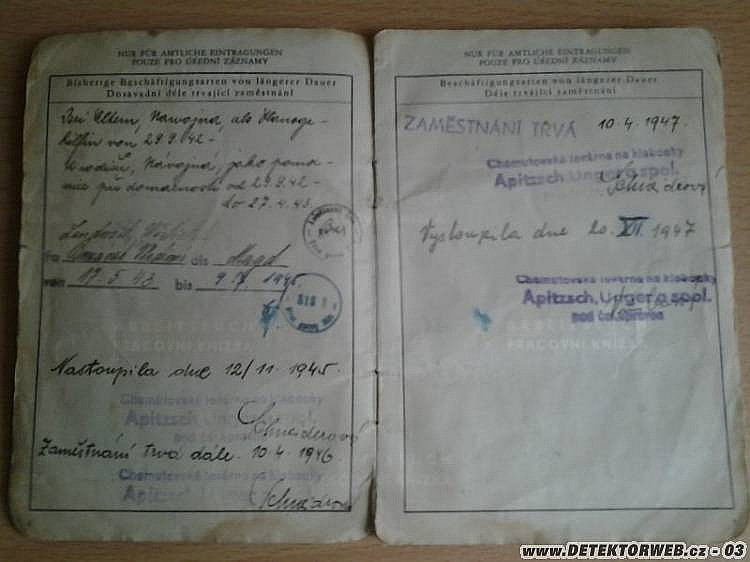 NUR FÜR AMTLICHE EINTRAGUNGEN
POUZE PRO ÚŘEDNÍ ZÁZNAMY
Bisherige Beschäftigungsarten von längerer Dauer
Dosavadní déle trvající zaměstnání
Bei Eltern, Nawojna, als Hausge-
hilfin von 29.9.42 -
U rodičů, Navojná, jako pomo-
nice při domácnosti od 29.9.42 -
do 27.4.43.
als Magd
von 17.5.43 bis 1945
ARBEITSBUCH
PRACOVNÍ KNÍŽKA
Nastoupila dne 12/11.1945.
Chomutovská továrna na klobouky
Apitzsch, Unger a spol.
pod čsl. správou
Schneiderová
Zaměstnání trvá dále. 10.4.1946.
Chomutovská továrna na klobouky
Apitzsch, Unger
Schneiderová
NUR FÜR AMTLICHE EINTRAGUNGEN
POUZE PRO ÚŘEDNÍ ZÁZNAMY
Beschäftigungsarten von längerer Dauer
Déle trvající zaměstnání
ZAMĚSTNÁNÍ TRVÁ 10.4.1947.
Chomutovská továrna na klobouky
Apitzsch, Unger a spol.
Schneiderová
Vystoupila dne 20. XII. 1947
Chomutovská továrna na klobouky
Apitzsch, Unger a spol.
pod čsl. správou
ARBEITSBUCH
PRACOVNÍ KNÍŽKA
www.DETEKTORWEB.cz - 03